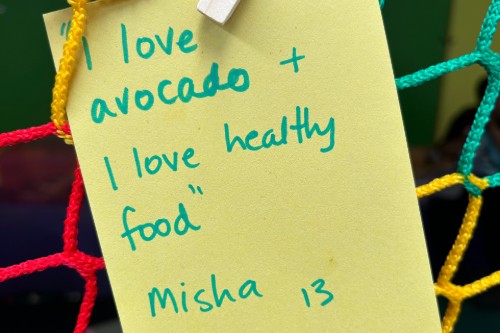 "I love
avocado +
I love healthy
food"
Misha 13